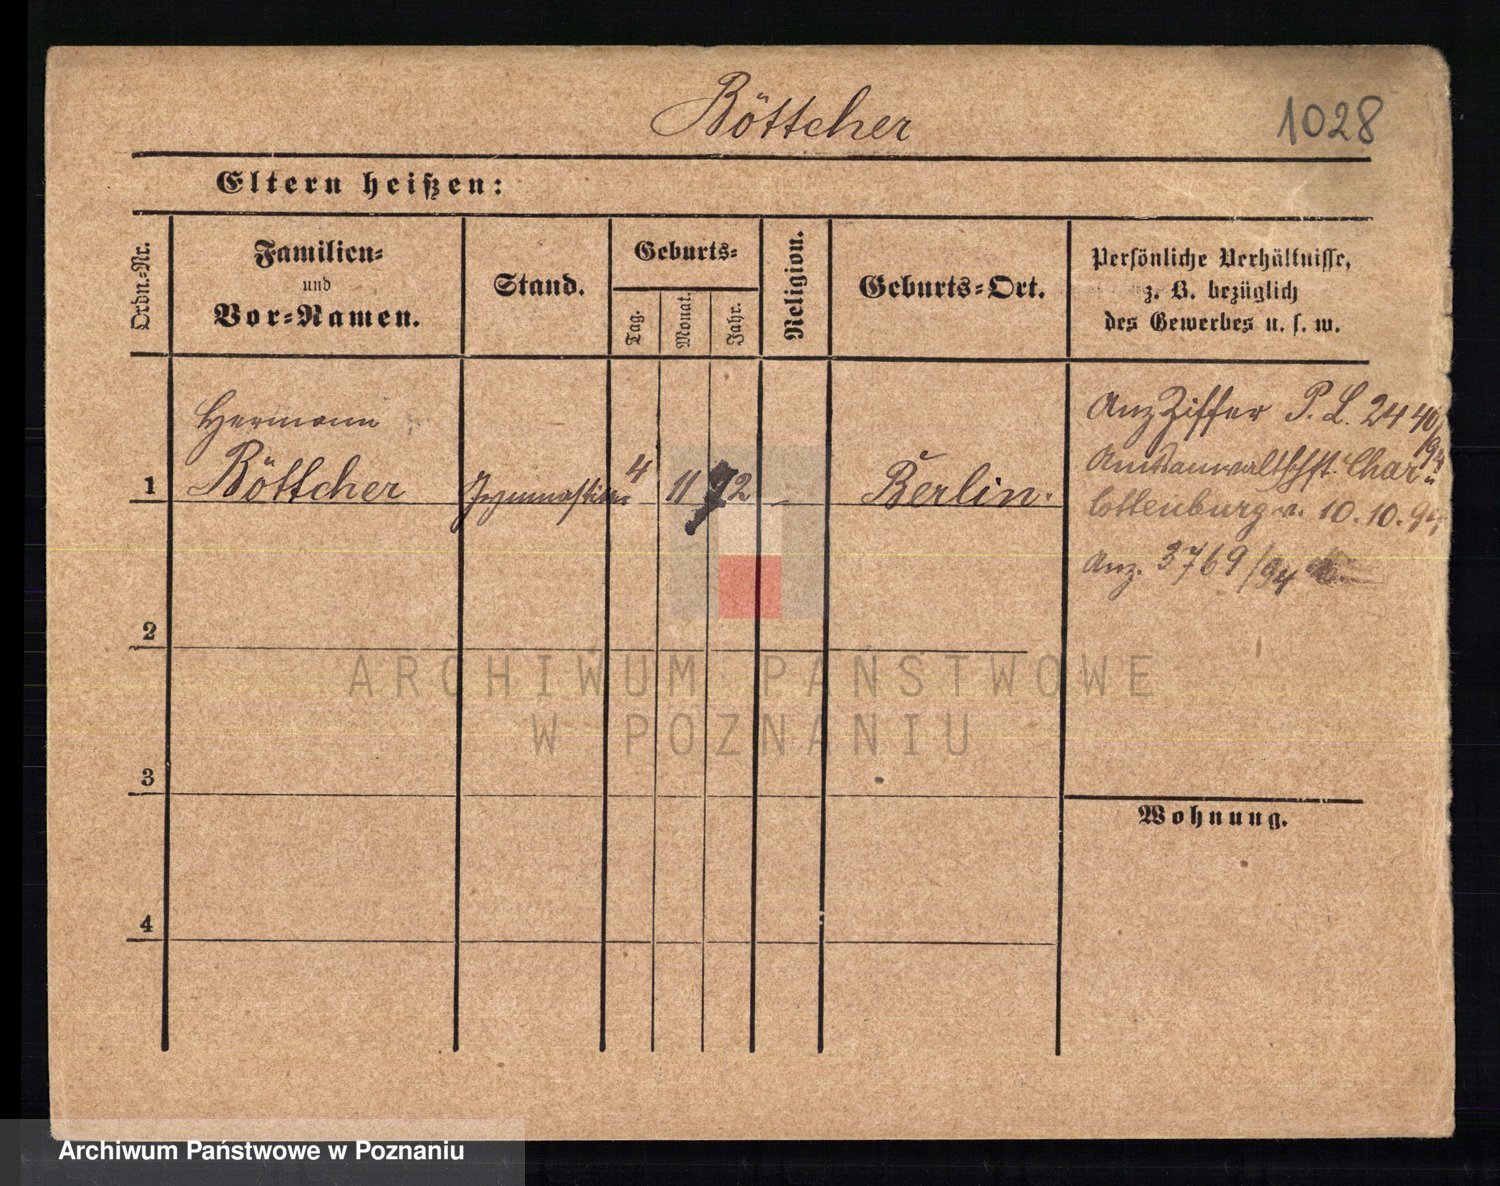 Böttcher
1028
Eltern heißen:
Ordn.-Nr.
Familien-
und
Vor-Namen.
Stand.
Geburts-
Tag.
Monat.
Jahr.
Religion.
Geburts-Ort.
Persönliche Verhältnisse,
z. B. bezüglich
des Gewerbes u. s. w.
Hermann
1 Böttcher Gymnastiker 4 11 72 - Berlin.
Anz Ziffer P. L. 2440/94
Amtsanwaltschft. Char-
lottenburg v. 10.10.94
Anz. 3769/94
2
3
4
Wohnung.
ARCHIWUM PAŃSTWOWE
W POZNANIU
Archiwum Państwowe w Poznaniu